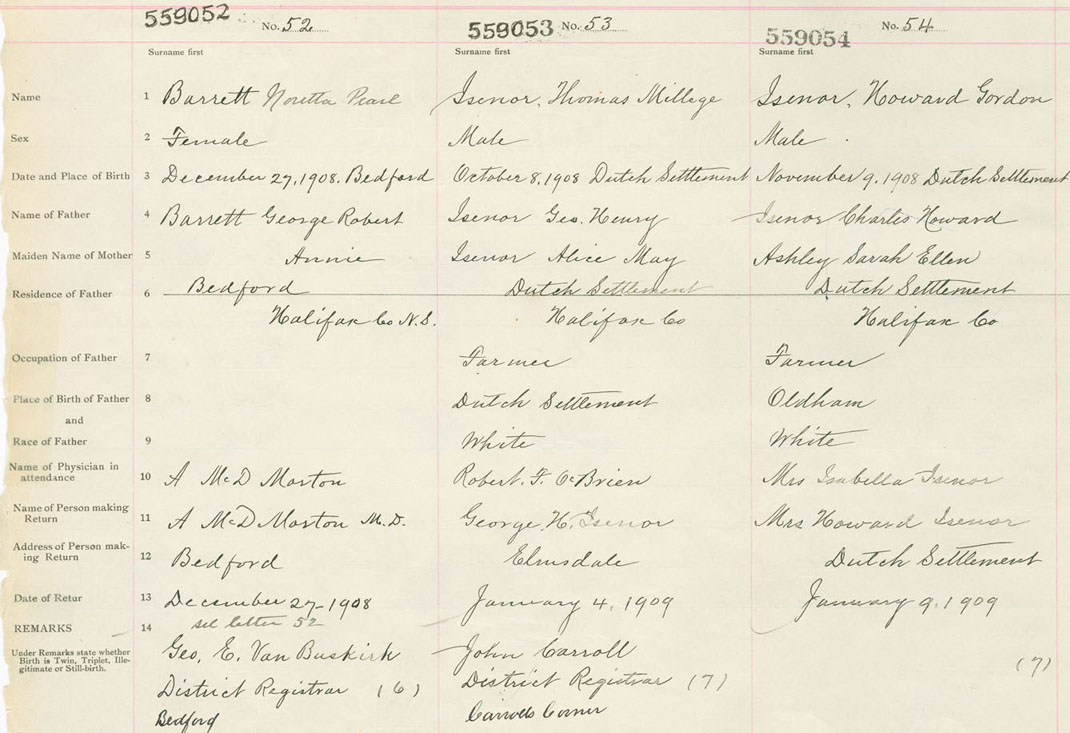 559052 No. 52 559053 No. 53 559054 No. 54
Surname first Surname first Surname first
Name 1 Barrett Noretta Pearl Isenor, Thomas Millege Isenor, Howard Gordon
Sex 2 Female Male Male
Date and Place of Birth 3 December 27, 1908. Bedford October 8, 1908 Dutch Settlement November 9, 1908 Dutch Settlement
Name of Father 4 Barrett George Robert Isenor Geo. Henry Isenor Charles Howard
Maiden Name of Mother 5 Annie Isenor Alice May Ashley Sarah Ellen
Residence of Father 6 Bedford Dutch Settlement Dutch Settlement
Halifax Co N.S. Halifax Co Halifax Co
Occupation of Father 7 Farmer Farmer
Place of Birth of Father 8 Dutch Settlement Oldham
and
Race of Father 9 White White
Name of Physician in
attendance 10 A McD Morton Robert. F. O'Brien Mrs Isabella Isenor
Name of Person making
Return 11 A McD Morton M.D. George. H. Isenor Mrs Howard Isenor
Address of Person mak-
ing Return 12 Bedford Elmsdale Dutch Settlement
Date of Retur 13 December 27-1908 January 4, 1909 January 9, 1909
REMARKS 14 see letter 52
Under Remarks state whether
Birth is Twin, Triplet, Ille-
gitimate or Still-birth.
Geo. E. Van Buskirk John Carroll (7)
District Registrar (6) District Registrar (7)
Bedford Carrolls Corner